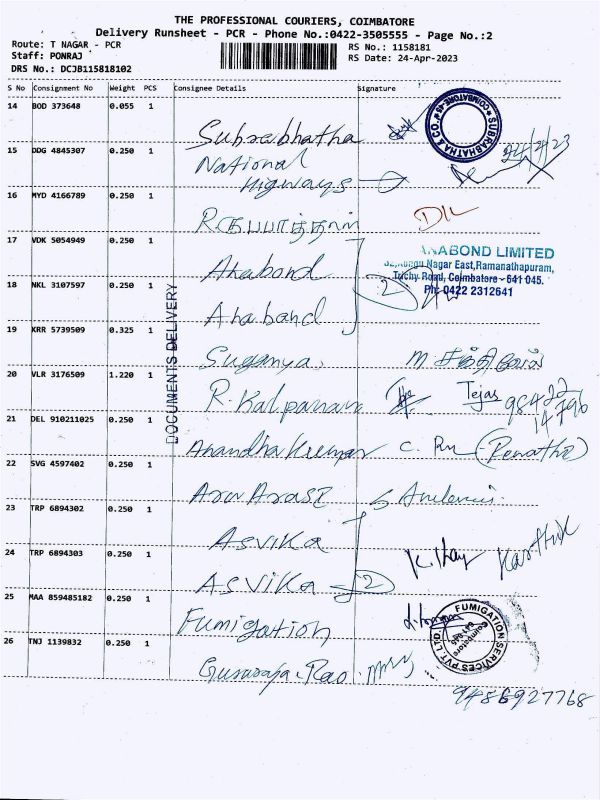 THE PROFESSIONAL COURIERS, COIMBATORE
Delivery Runsheet - PCR - Phone No.:0422-3505555 - Page No.:2
Route: T NAGAR - PCR
Staff: PONRAJ
DRS No.: DCJB115818102
RS No.: 1158181
RS Date: 24-Apr-2023
S No Consignment No Weight PCS Consignee Details Signature
14 BOD 373648 0.055 1 Subrabhatha
SUBRABHATHA & CO. COIMBATORE-45
15 DDG 4845307 0.250 1 National
Highways
16 MYD 4166789 0.250 1
17 VDK 5054949 0.250 1 Anabond
ANABOND LIMITED
Nagar East,Ramanathapuram,
Trichy Road, Coimbatore - 641 045.
Ph: 0422 2312641
18 NKL 3107597 0.250 1 Anabond 2
DOCUMENTS DELIVERY
19 KRR 5739509 0.325 1 Suganya
20 VLR 3176509 1.220 1 R. Kalpanan Tejas 98422
14796
21 DEL 910211025 0.250 1 Anandha Kumar
22 SVG 4597402 0.250 1 Arun Arasi
23 TRP 6894302 0.250 1 Asvika
24 TRP 6894303 0.250 1 Asvika 2 Karthik
25 MAA 859485182 0.250 1 Fumigation
FUMIGATION SERVICES PVT. LTD. Coimbatore
26 TNJ 1139832 0.250 1 Gururaja Rao
9486927768